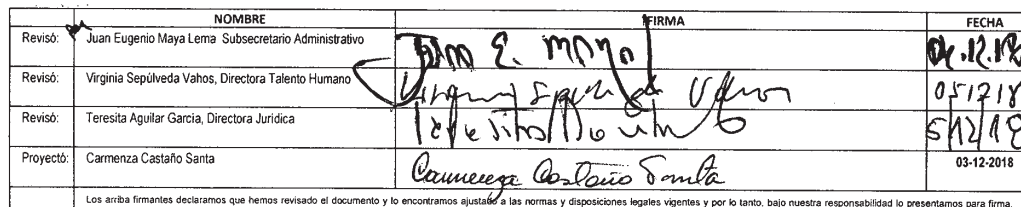 NOMBRE FIRMA FECHA
Revisó: Juan Eugenio Maya Lema Subsecretario Administrativo Juan E. Maya 04.12.18
Revisó: Virginia Sepúlveda Vahos, Directora Talento Humano Virginia Sepúlveda Vahos 051218
Revisó: Teresita Aguilar Garcia, Directora Jurídica Teresita 5/12/18
Proyectó: Carmenza Castaño Santa Carmenza Castaño Santa 03-12-2018
Los arriba firmantes declaramos que hemos revisado el documento y lo encontramos ajustado a las normas y disposiciones legales vigentes y por lo tanto, bajo nuestra responsabilidad lo presentamos para firma.